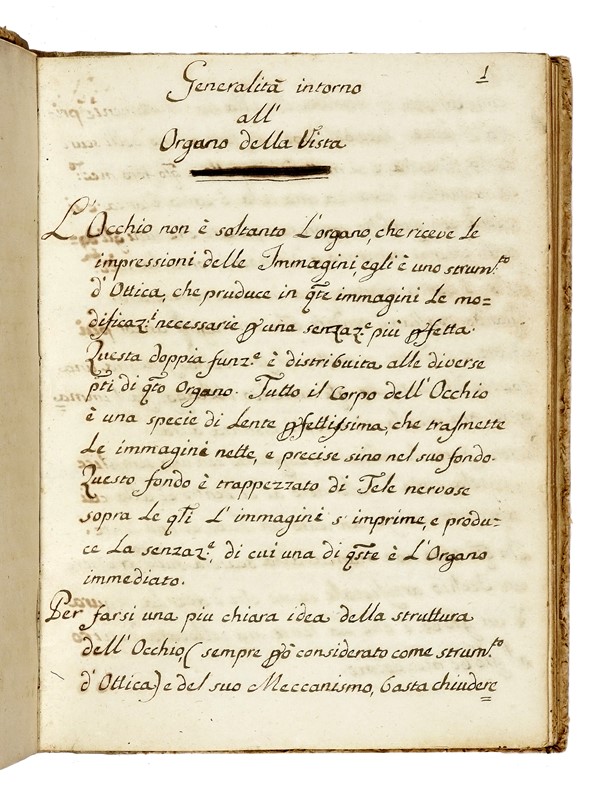 1
Generalità intorno
all'
Organo della Vista
L'Occhio non è soltanto L'organo, che riceve Le
impressioni delle Immagini egli è uno strum.to
d'Ottica, che pruduce in qte immagini Le mo=
dificaz.i necessarie p una senzaz.e più pfetta.
Questa doppia funz.e è distribuita alle diverse
pti di qto Organo. Tutto il Corpo dell'Occhio
è una specie di Lente pfettissima, che trasmette
Le immagini nette, e precise sino nel suo fondo.
Questo fondo è trappezzato di Tele nervose
sopra Le qli L'immagine s'imprime, e produ=
ce La senzaz.e, di cui una di qste è L'Organo
immediato.
Per farsi una piu chiara idea della struttura
dell'Occhio, (sempre pò considerato come strum.to
d'Ottica) e del suo Meccanismo, basta chiudere